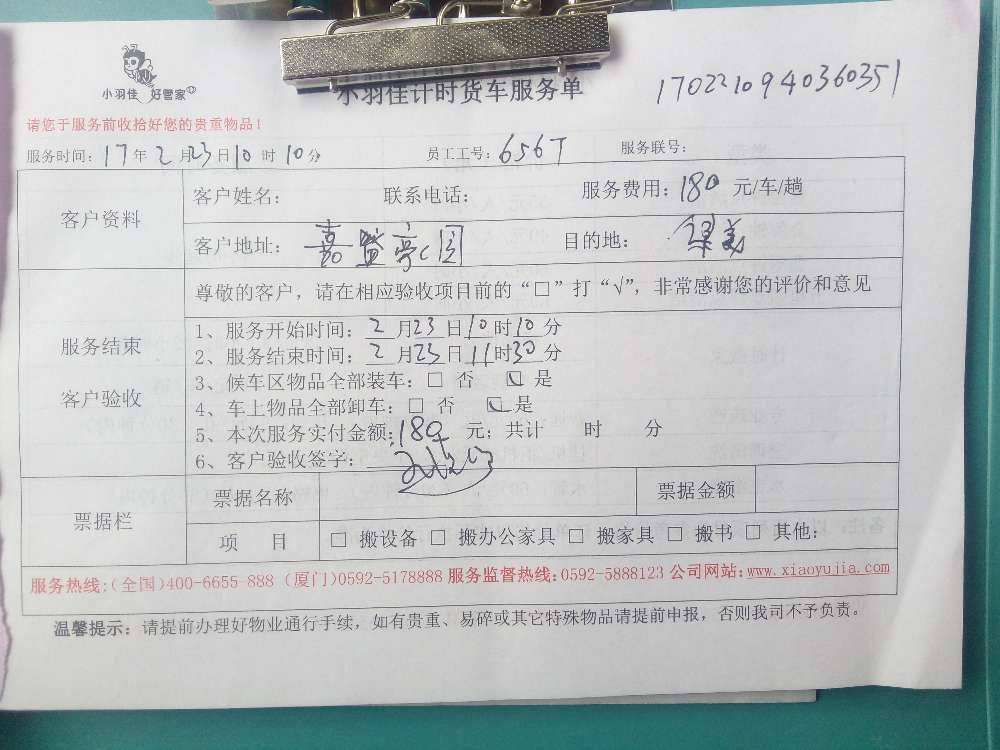 小羽佳 好管家
小羽佳计时货车服务单
1702210940360351
请您于服务前收拾好您的贵重物品!
服务时间:17年2月23日10时10分 员工工号:656T 服务联号:
客户资料
客户姓名: 联系电话: 服务费用:180 元/车/趟
客户地址: 嘉盛豪园 目的地:
服务结束
客户验收
尊敬的客户,请在相应验收项目前的“□”打“√”,非常感谢您的评价和意见
1、服务开始时间:2月23日10时10分
2、服务结束时间:2月23日11时30分
3、候车区物品全部装车:□ 否 ☑ 是
4、车上物品全部卸车:□ 否 ☑ 是
5、本次服务实付金额:180 元;共计 时 分
6、客户验收签字:
票据栏
票据名称 票据金额
项 目 □ 搬设备 □ 搬办公家具 □ 搬家具 □ 搬书 □ 其他:
服务热线:(全国)400-6655-888 (厦门)0592-5178888 服务监督热线:0592-5888123 公司网站:www.xiaoyujia.com
温馨提示:请提前办理好物业通行手续,如有贵重、易碎或其它特殊物品请提前申报,否则我司不予负责。